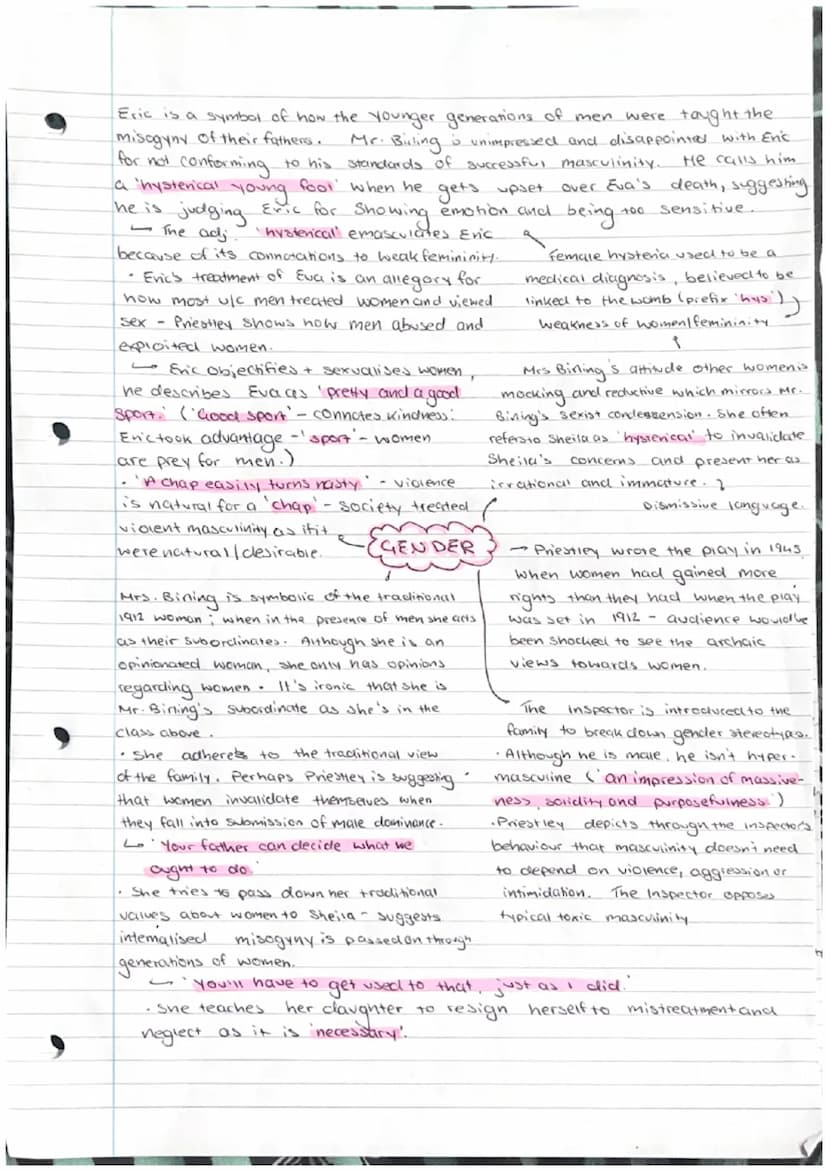 Eric is a symbol of how the younger generations of men were taught the
misogyny of their fathers. Mr. Birling is unimpressed and disappointed with Eric
for not conforming to his standards of successful masculinity. He calls him
a 'hysterical young fool' when he gets upset over Eva's death, suggesting
he is judging Eric for showing emotion and being too sensitive.
↳ The adj. 'hysterical' emasculates Eric
because of its connotations to weak femininity.
• Eric's treatment of Eva is an allegory for
how most u/c men treated women and viewed
sex - Priestley shows how men abused and
exploited women.
↳ Eric objectifies + sexualises women,
he describes Eva as 'pretty and a good
sport.' ('Good sport' - connotes kindness:
Eric took advantage - 'sport' - women
are prey for men.)
• 'A chap easily turns nasty' - violence
is natural for a 'chap' - society treated
violent masculinity as if it
were natural/desirable.
Female hysteria used to be a
medical diagnosis, believed to be
linked to the womb (prefix 'hys')
weakness of women/femininity
Mrs Birling's attitude other women is
mocking and reductive which mirrors Mr.
Birling's sexist condescension. She often
refers to Sheila as 'hysterical' to invalidate
Sheila's concerns and present her as
irrational and immature.
Dismissive language.
GENDER
→ Priestley wrote the play in 1945
when women had gained more
rights than they had when the play
was set in 1912 - audience would've
been shocked to see the archaic
views towards women.
Mrs. Birling is symbolic of the traditional
1912 woman; when in the presence of men she acts
as their subordinates. Although she is an
opinionated woman, she only has opinions
regarding women. It's ironic that she is
Mr. Birling's subordinate as she's in the
class above.
• She adheres to the traditional view
of the family. Perhaps Priestley is suggesting
that women invalidate themselves when
they fall into submission of male dominance.
↳ 'Your father can decide what we
ought to do.'
• She tries to pass down her traditional
values about women to Sheila - suggests
internalised misogyny is passed on through
generations of women.
↳ 'You'll have to get used to that, just as I did.'
• She teaches her daughter to resign herself to mistreatment and
neglect as it is 'necessary'.
The Inspector is introduced to the
family to break down gender stereotypes.
• Although he is male, he isn't hyper-
masculine ('an impression of massive-
ness, solidity and purposefulness.')
• Priestley depicts through the Inspector's
behaviour that masculinity doesn't need
to depend on violence, aggression or
intimidation. The Inspector opposes
typical toxic masculinity